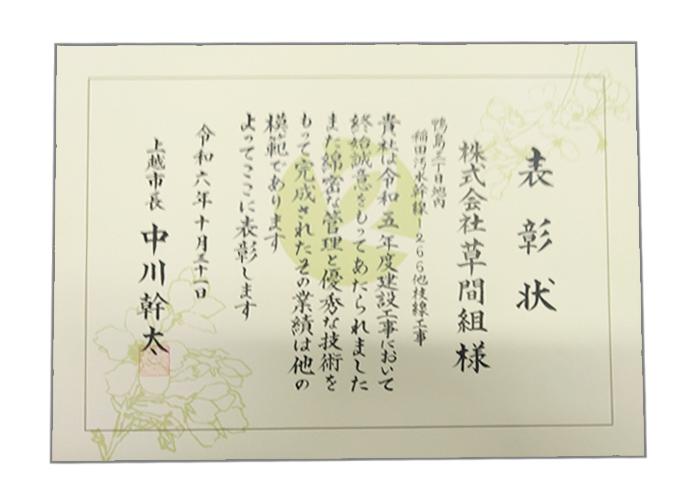 表彰状
株式会社草間組様
鴨島三丁目地内
稲田汚水幹線-266他枝線工事
貴社は令和五年度建設工事において
終始誠意をもってあたられました
また綿密な管理と優秀な技術を
もって完成されたその業績は他の
模範であります
よってここに表彰します
令和六年十月三十一日
上越市長 中川幹太